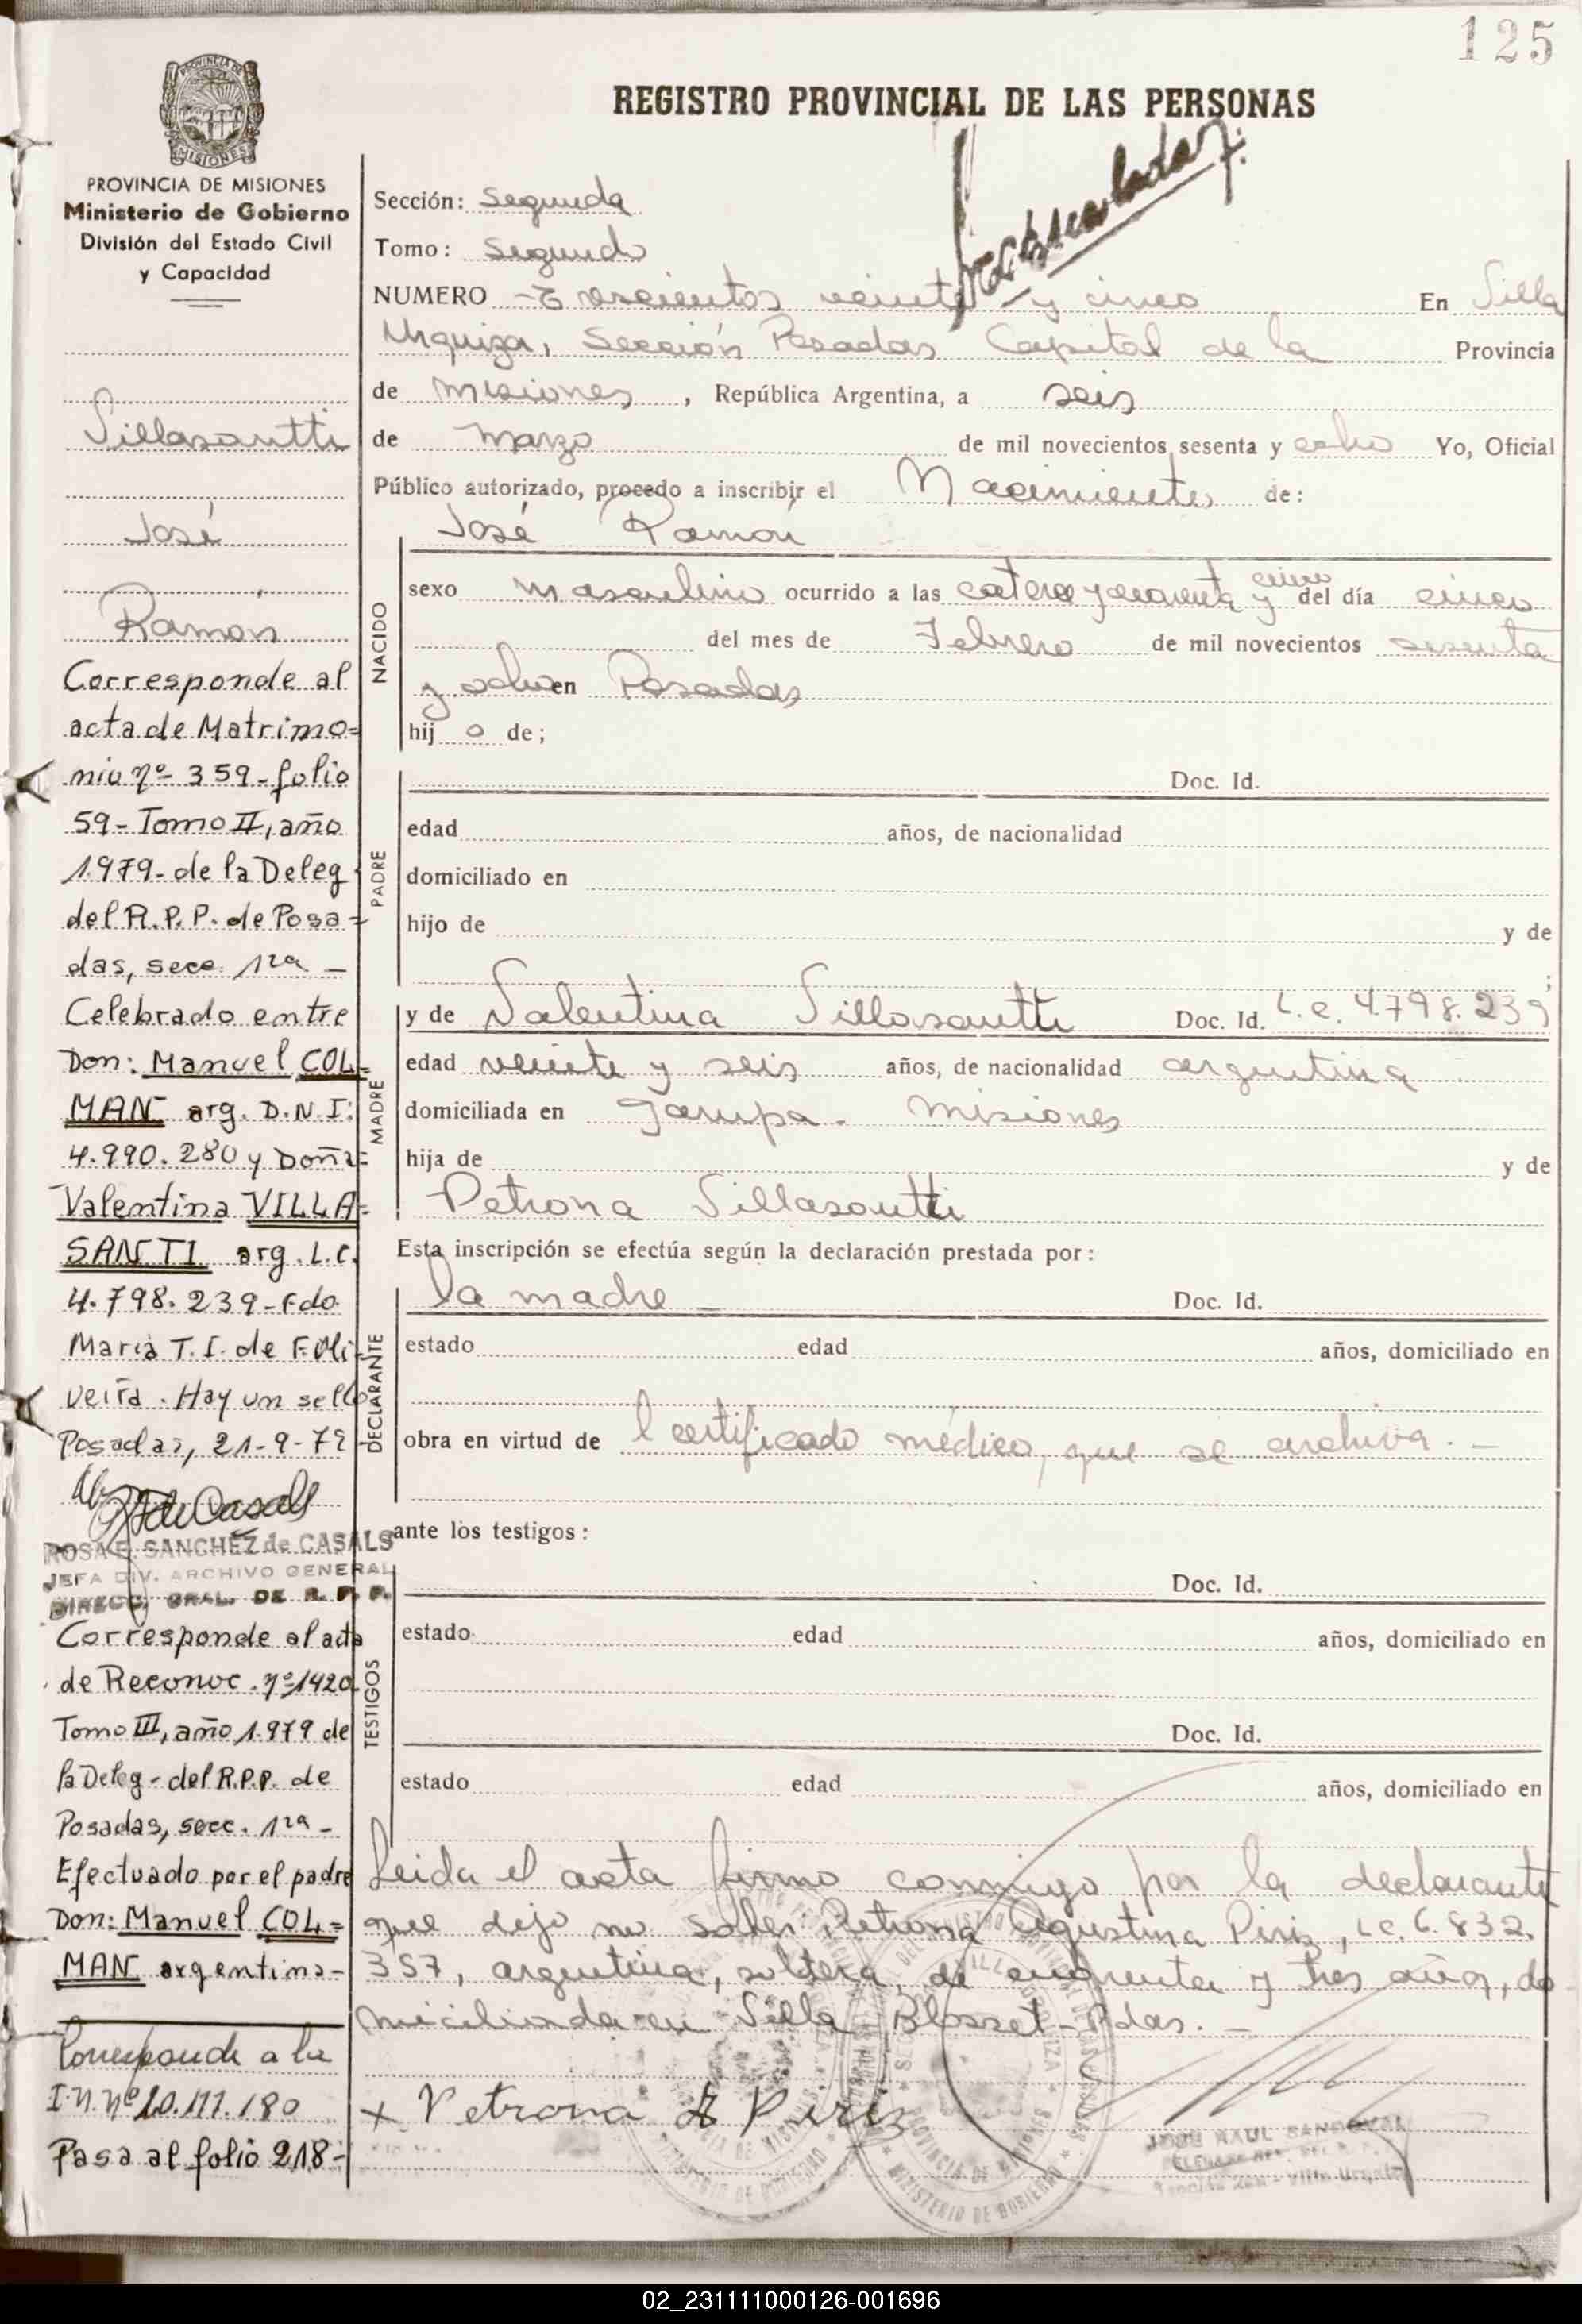 125
REGISTRO PROVINCIAL DE LAS PERSONAS
PROVINCIA DE MISIONES
MISIONES
PROVINCIA DE MISIONES
Ministerio de Gobierno
División del Estado Civil
y Capacidad
Villasantti
José
Ramón
Corresponde al
acta de Matrimo=
nio nº 359-folio
59-Tomo II, año
1.979-de la Deleg.
del R.P.P. de Posa-
das, secc. 1ra -
Celebrado entre
Don: Manuel COL=
MAN arg. D.N.I:
4.990.280 y Doña=
Valentina VILLA=
SANTI arg. L.C.
4.798.239-Fdo.
María T. I. de F. Oli-
veira. Hay un sello
Posadas, 21-9-79
ROSA E. SANCHEZ de CASALS
JEFA DIV. ARCHIVO GENERAL
DIRECC. GRAL. DE R. P. P.
Corresponde al acta
de Reconoc. nº 1420
Tomo III, año 1.979 de
la Deleg- del R.P.P. de
Posadas, secc. 1ra -
Efectuado por el padre
Don: Manuel COL=
MAN argentino-
Corresponde a la
I.N. nº 20.117.180
Pasa al folio 218-
Sección: Segunda
Tomo: Segundo
NUMERO -Trescientos veinte y cinco En Villa
Urquiza, Sección Posadas Capital de la Provincia
de Misiones, República Argentina, a seis
de Marzo de mil novecientos sesenta y ocho Yo, Oficial
Público autorizado, procedo a inscribir el Nacimiento de:
José Ramón
NACIDO
sexo masculino ocurrido a las catorce y cuarenta y cinco del día cinco
del mes de Febrero de mil novecientos sesenta
y ocho en Posadas
hij o de;
PADRE
Doc. Id.
edad años, de nacionalidad
domiciliado en
hijo de y de
;
MADRE
y de Valentina Villasantti Doc. Id. L.C. 4.798.239
edad veinte y seis años, de nacionalidad argentina
domiciliada en Garupa. Misiones
hija de y de
Petrona Villasantti
Esta inscripción se efectúa según la declaración prestada por:
DECLARANTE
la madre - Doc. Id.
estado edad años, domiciliado en
obra en virtud de l certificado médico, que se archiva. -
ante los testigos:
TESTIGOS
Doc. Id.
estado edad años, domiciliado en
Doc. Id.
estado edad años, domiciliado en
Leida el acta firmo conmigo por la declarante
que dijo no saber Petrona Agustina Piriz, L.C. 6.832.
357, argentina, soltera, de cuarenta y tres años, do
miciliada en Villa Blosset-Pdas. -
x Petrona A Piriz
JOSE RAUL SANDOVAL
02_231111000126-001696